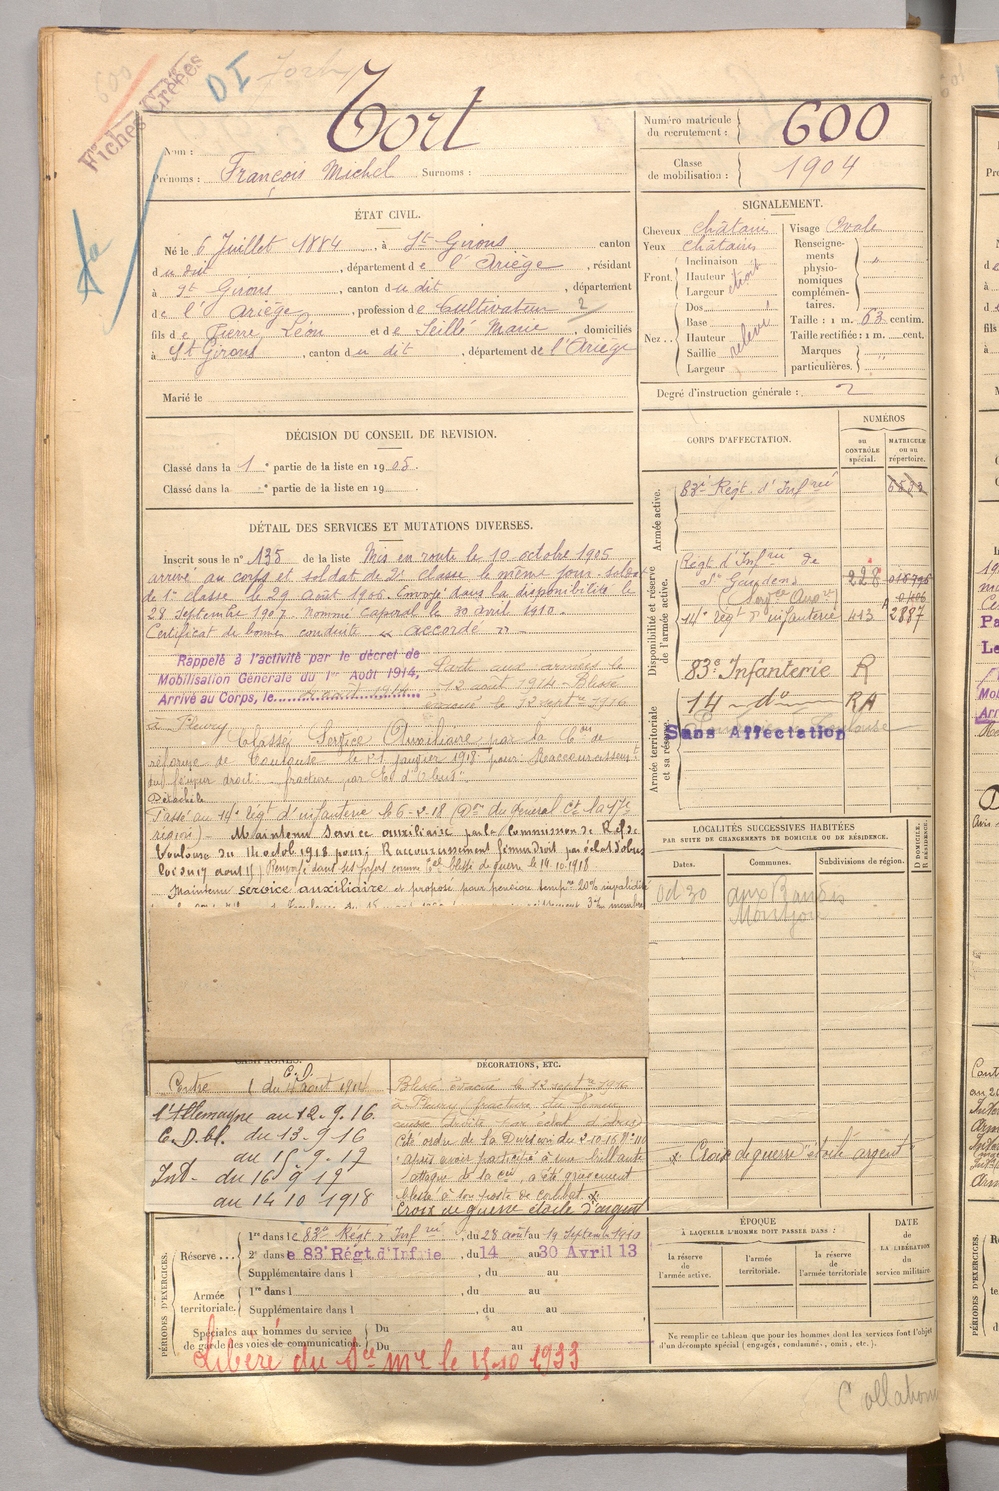 600
Fiches Créées
DI
Tort
Nom :
Prénoms : François Michel Surnoms :
Numéro matricule du recrutement : 600
Classe de mobilisation : 1904
ÉTAT CIVIL.
Né le 6 Juillet 1884, à St-Girons canton
du dit, département de l'Ariège, résidant
à St Girons, canton du dit, département
de l'Ariège, profession de Cultivateur 2
fils de Pierre Léon et de Seillé Marie, domiciliés
à St Girons, canton du dit, département de l'Ariège
Marié le
SIGNALEMENT.
Cheveux châtains Visage Ovale
Yeux châtains
Front. Inclinaison
Hauteur
Largeur étroit
Nez.. Dos
Base
Hauteur
Saillie relevé
Largeur
Renseignements physionomiques complémentaires. "
Taille : 1 m. 63 centim.
Taille rectifiée : 1 m. cent.
Marques particulières. "
Degré d'instruction générale : 2
DÉCISION DU CONSEIL DE REVISION.
Classé dans la 1e partie de la liste en 1905.
Classé dans la e partie de la liste en 19
DÉTAIL DES SERVICES ET MUTATIONS DIVERSES.
Inscrit sous le n° 135 de la liste Mis en route le 10 octobre 1905
arrivé au corps et soldat de 2e classe le même jour. soldat
de 1re classe le 29 Août 1906. Envoyé dans la disponibilité le
28 Septembre 1907. Nommé caporal le 30 avril 1910.
Certificat de bonne conduite « accordé »
Rappelé à l'activité par le décret de
Mobilisation Générale du 1er Août 1914,
Arrivé au Corps, le août 1914
Parti aux armées le
12 août 1914 - Blessé
évacué le 12 septre 1916
à Fleury
Classé Service Auxiliaire par la Con de
réforme de Toulouse le 1 janvier 1918 pour: Raccourcissemt
du fémur droit: fracture par Et d'Obus
Détaché
Passé au 14e Régt d'infanterie le 6-2-18 (Don du général Ct la 17e
région) - Maintenu Service auxiliaire par la Commission de Réf de
Toulouse du 14 octob 1918 pour: Raccourcissement fémur droit par éclat d'obus
(Loi du 17 août 15) Renvoyé dans ses foyers comme blessé de guerre le 14.10.1918
Maintenu service auxiliaire et proposé pour pension tempre 20% invalidité
CORPS D'AFFECTATION.
NUMÉROS
au CONTRÔLE spécial.
MATRICULE ou au répertoire.
Armée active.
83e Régt d'Infrie 6583
Disponibilité et réserve de l'armée active.
Régt d'Infrie de
St Gaudens 228
14e Régt d'infanterie 413 2887
83e Infanterie R
Armée territoriale et sa réserve.
14 do RA
Sans Affectation
LOCALITÉS SUCCESSIVES HABITÉES
PAR SUITE DE CHANGEMENTS DE DOMICILE OU DE RÉSIDENCE.
Dates. Communes. Subdivisions de région. D DOMICILE. R RÉSIDENCE.
Od 30 aux Bordes
Montjoie
CAMPAGNES.
C.D.
Contre du 4 août 1914
l'Allemagne au 12.9.16.
C.D.bl. du 13-9-16
au 15-9-17
Int- du 16 9 17
au 14 10 1918
DÉCORATIONS, ETC.
Blessé évacué le 12 septre 1916
à Fleury fracture du fémur
cuisse droite par éclat d'obus
Cité ordre de la Division du 2-10-16 N° 110
"après avoir participé à une brillante
attaque de la Cie, a été grièvement
blessé à son poste de combat. x
Croix de guerre étoile d'argent
x Croix de guerre étoile argent
PÉRIODES D'EXERCICES.
Réserve... 1re dans le 83e Régt d'Infrie, du 28 août au 19 Septembre 1910
2e dans le 83e Régt d'Infrie, du 14 au 30 Avril 13
Supplémentaire dans l , du au
Armée territoriale. 1re dans l , du au
Supplémentaire dans l , du au
Spéciales aux hommes du service de garde des voies de communication. Du au
Du au
Libéré du Sce Mre le 15-10 1933
ÉPOQUE
À LAQUELLE L'HOMME DOIT PASSER DANS :
la réserve de l'armée active.
l'armée territoriale.
la réserve de l'armée territoriale
DATE de LA LIBÉRATION du service militaire.
Ne remplir ce tableau que pour les hommes dont les services font l'objet
d'un décompte spécial (engagés, condamnés, omis, etc.).